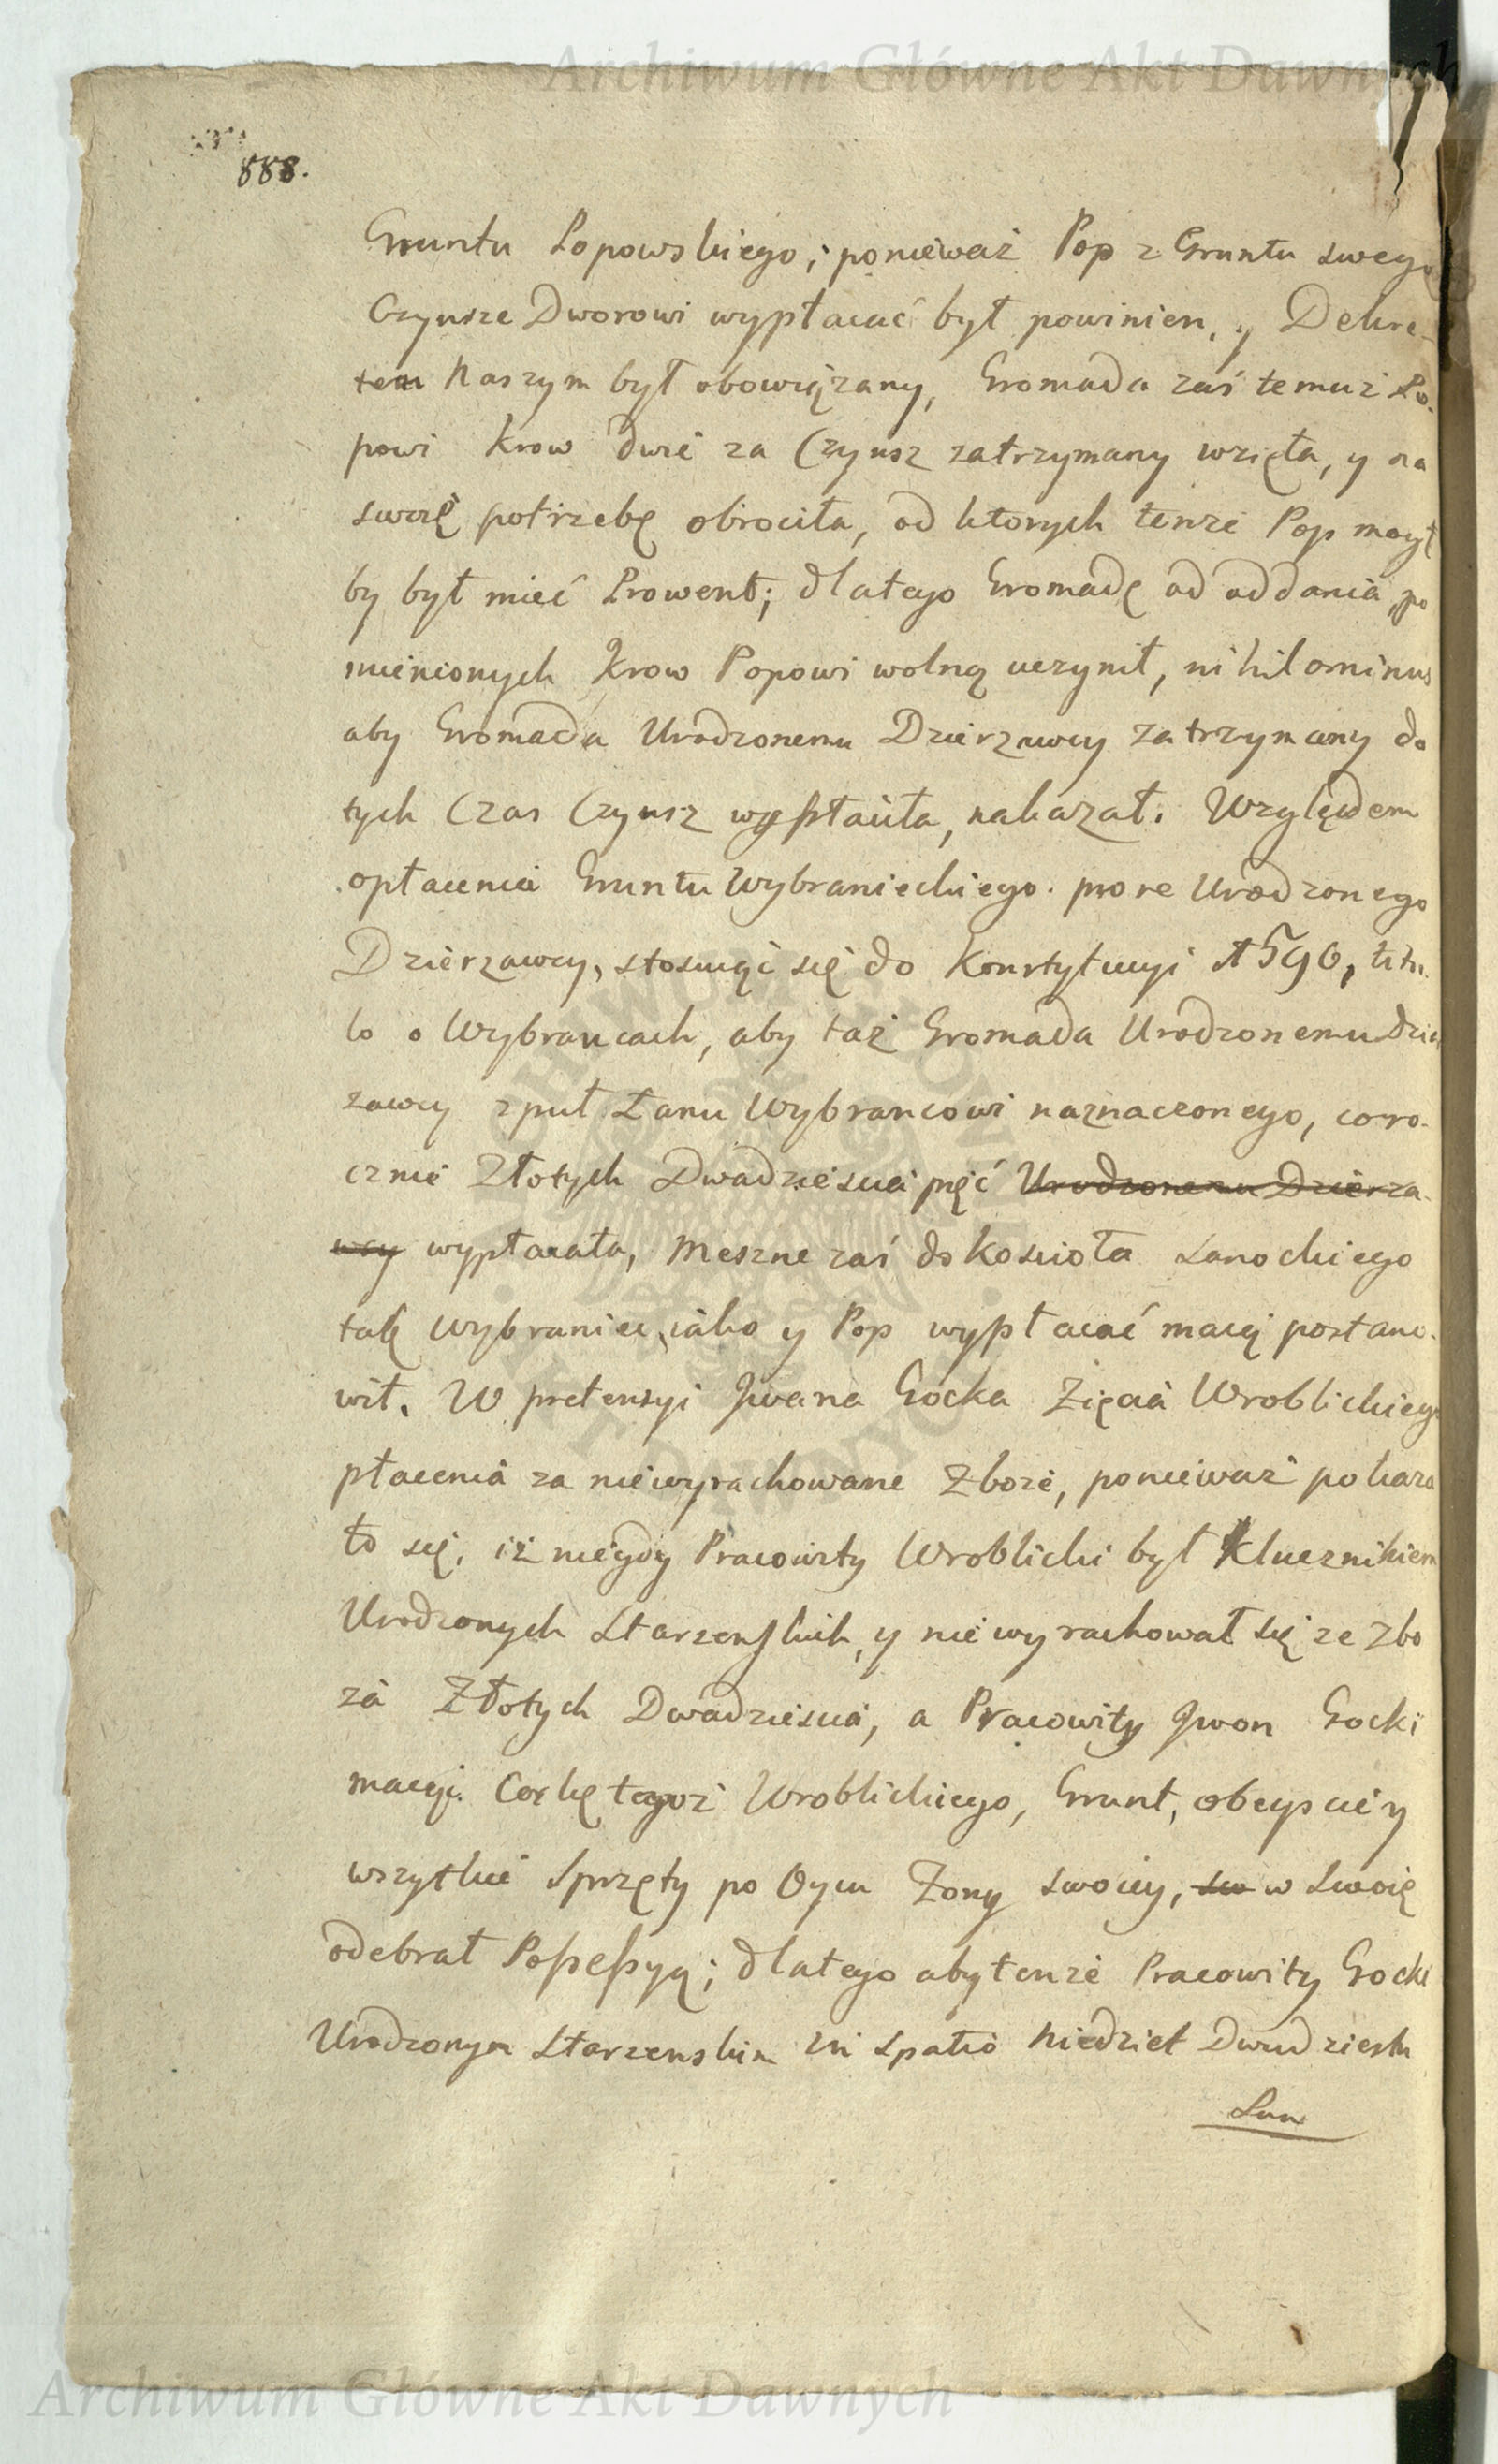 Archiwum Główne Akt Dawnych
888.
Gruntu Popowskiego; ponieważ Pop z Gruntu swego
Czynsze Dworowi wypłacać był powinien, y Dekre-
tem Naszym był obowiązany, Gromada zaś temuż Po-
powi Krow dwie za Czynsz zatrzymany wzięła, y na
swoię potrzebę obrociła, od ktorych tenże Pop mogł
by był mieć Prowent; dlatego Gromadę od oddania po
mienionych Krow Popowi wolną uczynił, nihilominus
aby Gromada Urodzonemu Dzierzawcy zatrzymany do
tych Czas Czynsz wypłaciła, nakazał. Względem
opłacenia Gruntu Wybranieckiego. prore Urodzonego
Dzierzawcy, stosuiąc się do Konstytucyi 1590, titu-
lo o Wybrancach, aby taż Gromada Urodzonemu Dzier
zawcy z puł Łanu Wybrancowi naznaczonego, coro-
cznie Złotych Dwadziescia pięć Urodzonemu Dzierza-
wcy wypłacała, Meszne zaś do Kościoła Sanockiego
tak Wybraniec, iako y Pop wypłacać maią postano-
wił. W pretensyi Jwana Gocka Zięcia Wroblickiego
płacenia za niewyrachowane Zboże, ponieważ pokaza
ło się, iż niegdy Pracowity Wroblicki był Klucznikiem
Urodzonych Starzenskich, y nie wyrachował się ze Zbo
za Złotych Dwadziescia, a Pracowity Jwon Gocki
maiąc Corkę tegoż Wroblickiego, Grunt, obeyscie y
wszytkie Sprzęty po Oycu Zony swoiey, sw w Swoię
odebrał Possessyą; dlatego aby tenże Pracowity Gocki
Urodzonym Starzenskim in spatio Niedziel Dwudziestu
Sum
Archiwum Główne Akt Dawnych